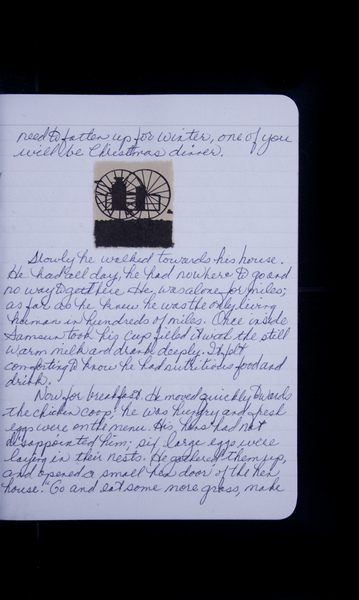 need to fatten up for winter, one of you
will be Christmas dinner.
Slowly he walked towards his house.
He had all day, he had nowhere to go and
no way to get there. He was alone for miles;
as far as he knew he was the only living
human in hundreds of miles. Once inside
Samson took his cup, filled it with the still
warm milk and drank deeply. It felt
comforting to know he had nutritious food and
drink.
Now for breakfast. He moved quickly towards
the chicken coop; he was hungry and fresh
eggs were on the menu. His hens had not
disappointed him; six large eggs were
laying in their nests. He gathered them up,
and opened a small door of the hen
house. "Go and eat some more grass, make